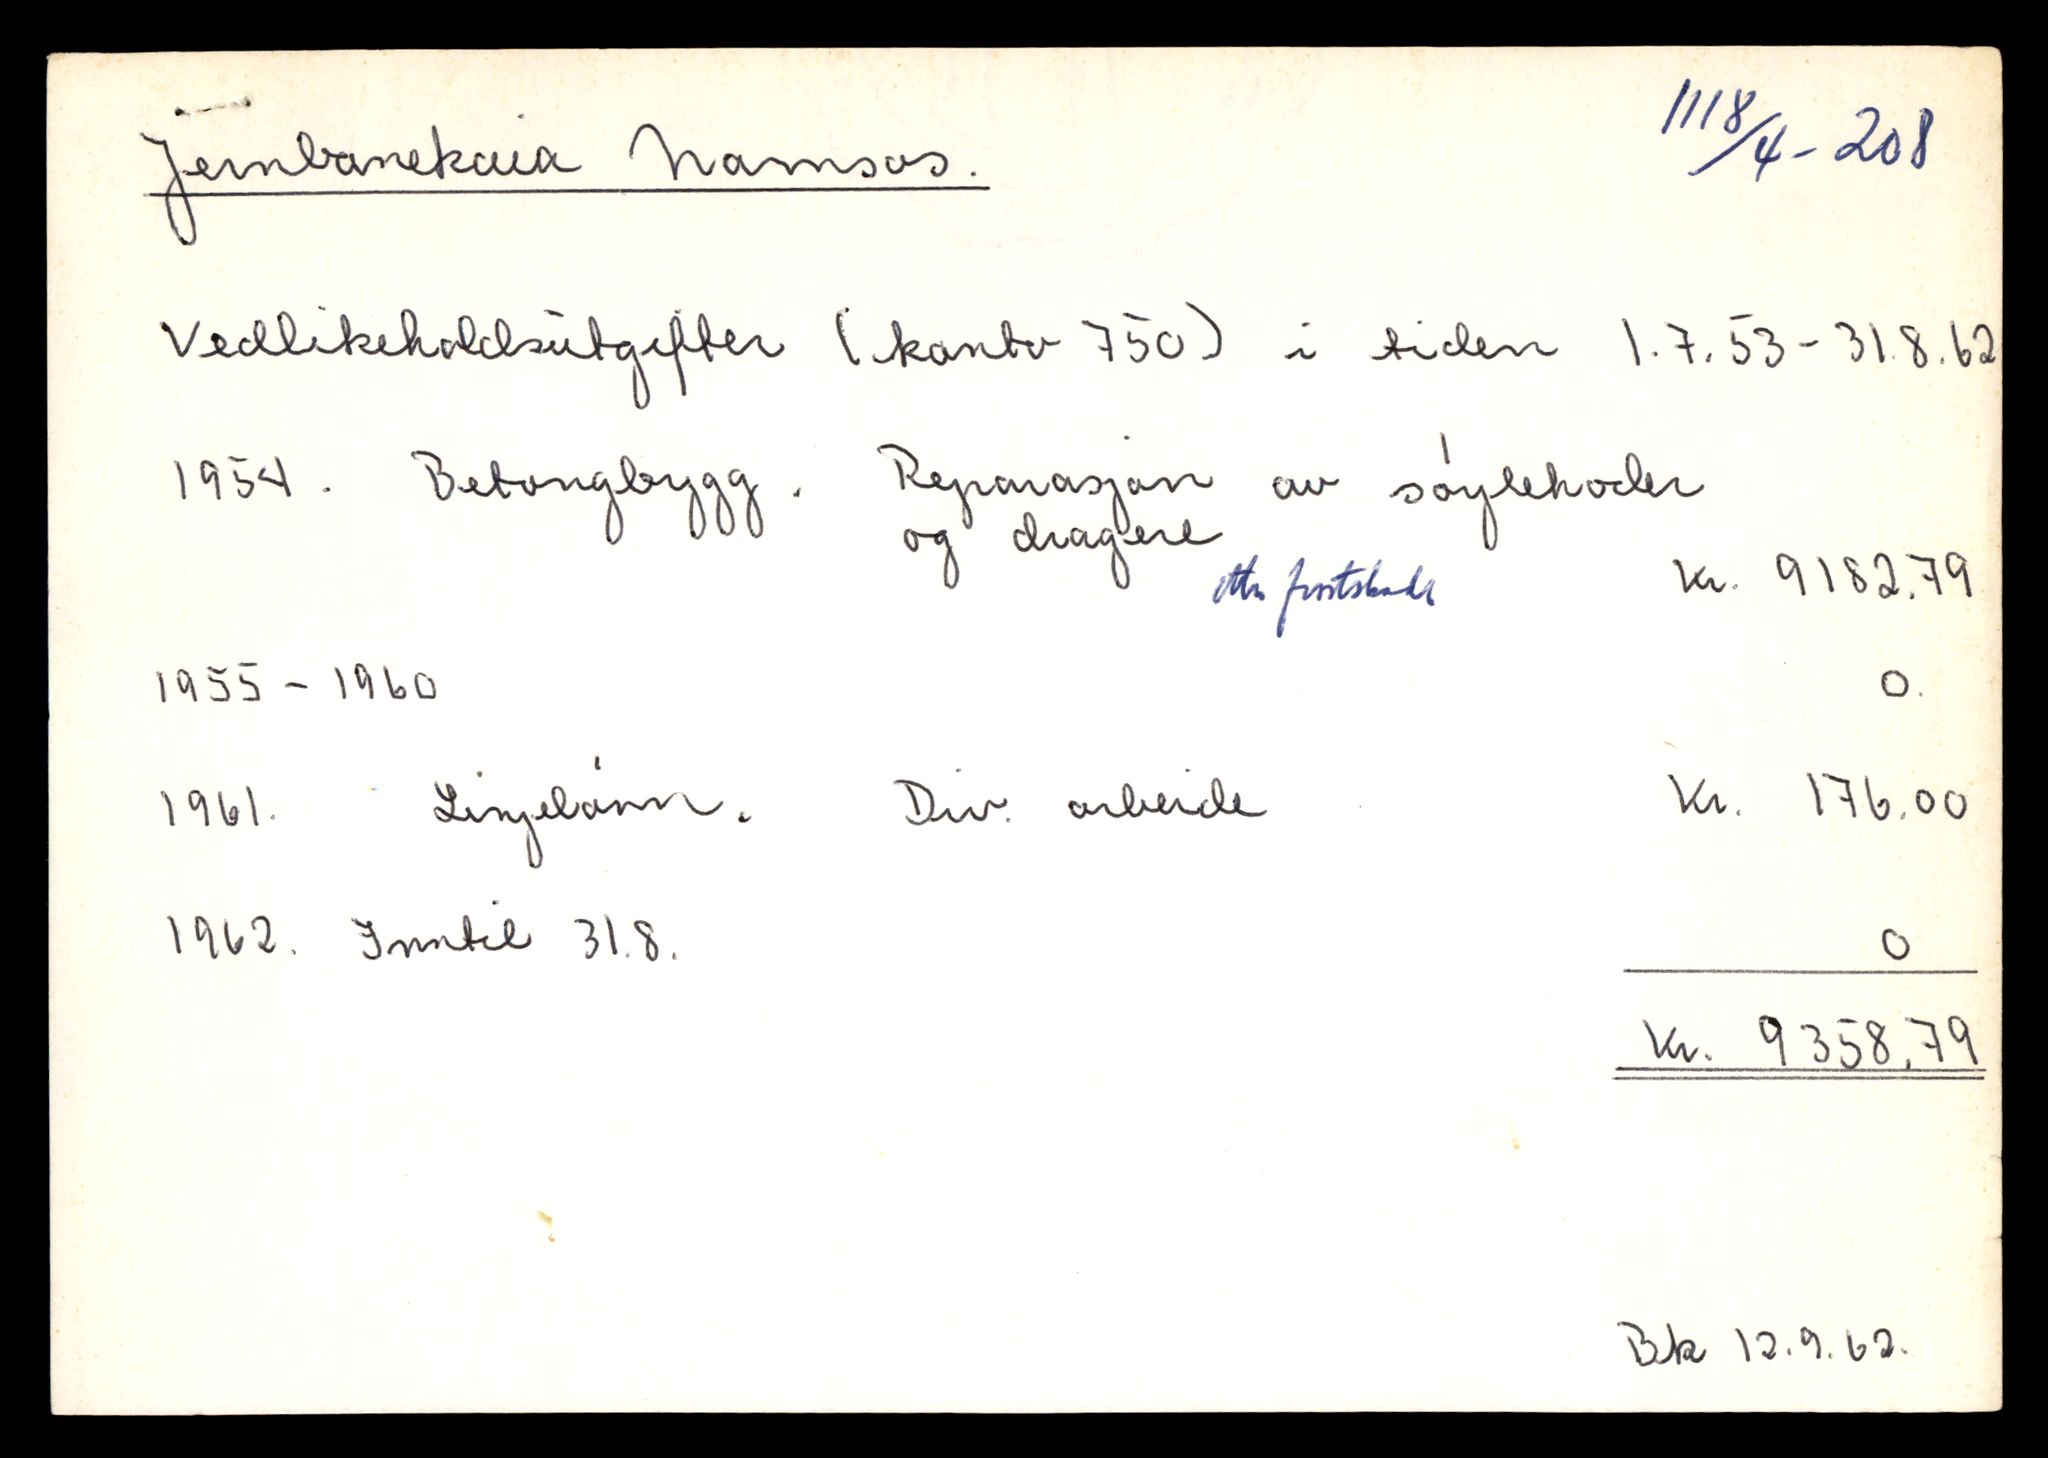 1118/4-208
Jernbanekaia Namsos.
Vedlikeholdsutgifter (konto 750) i tiden 1.7.53 - 31.8.62
1954. Betongbygg. Reparasjon av søylehoder
og dragere
etter frostskade
Kr. 9182.79
1955 - 1960 0.
1961. Linjelånn. Div. arbeide Kr. 176.00
1962. Inntil 31.8. 0
Kr. 9358.79
Bk 12.9.62.